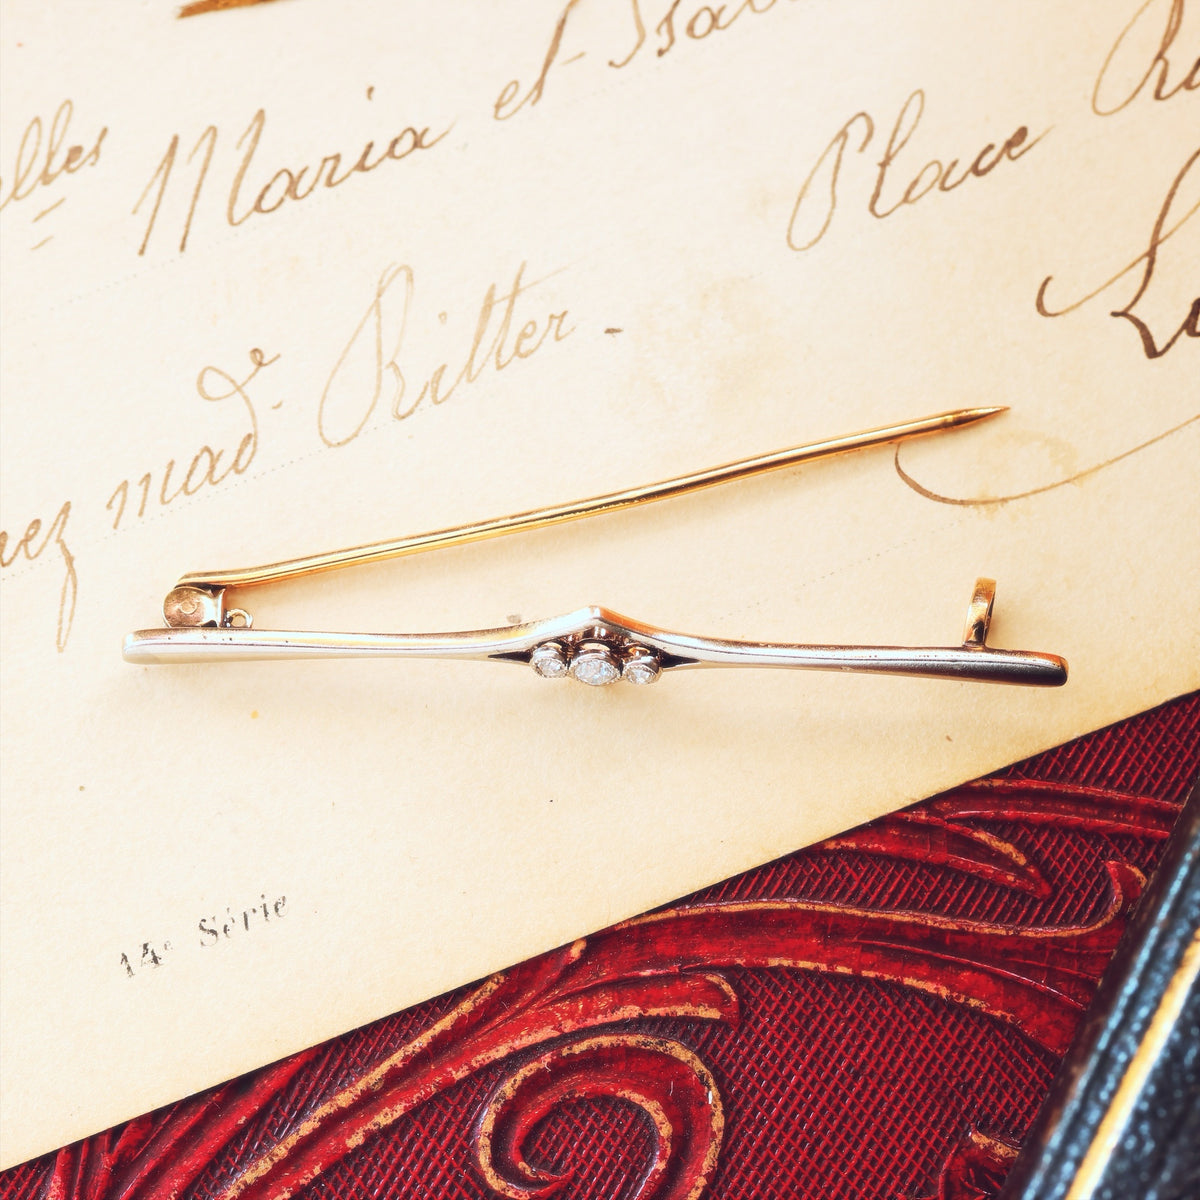 elles Maria et Isab
Place Ri
Lu
nez mad. Ritter.
14e Série